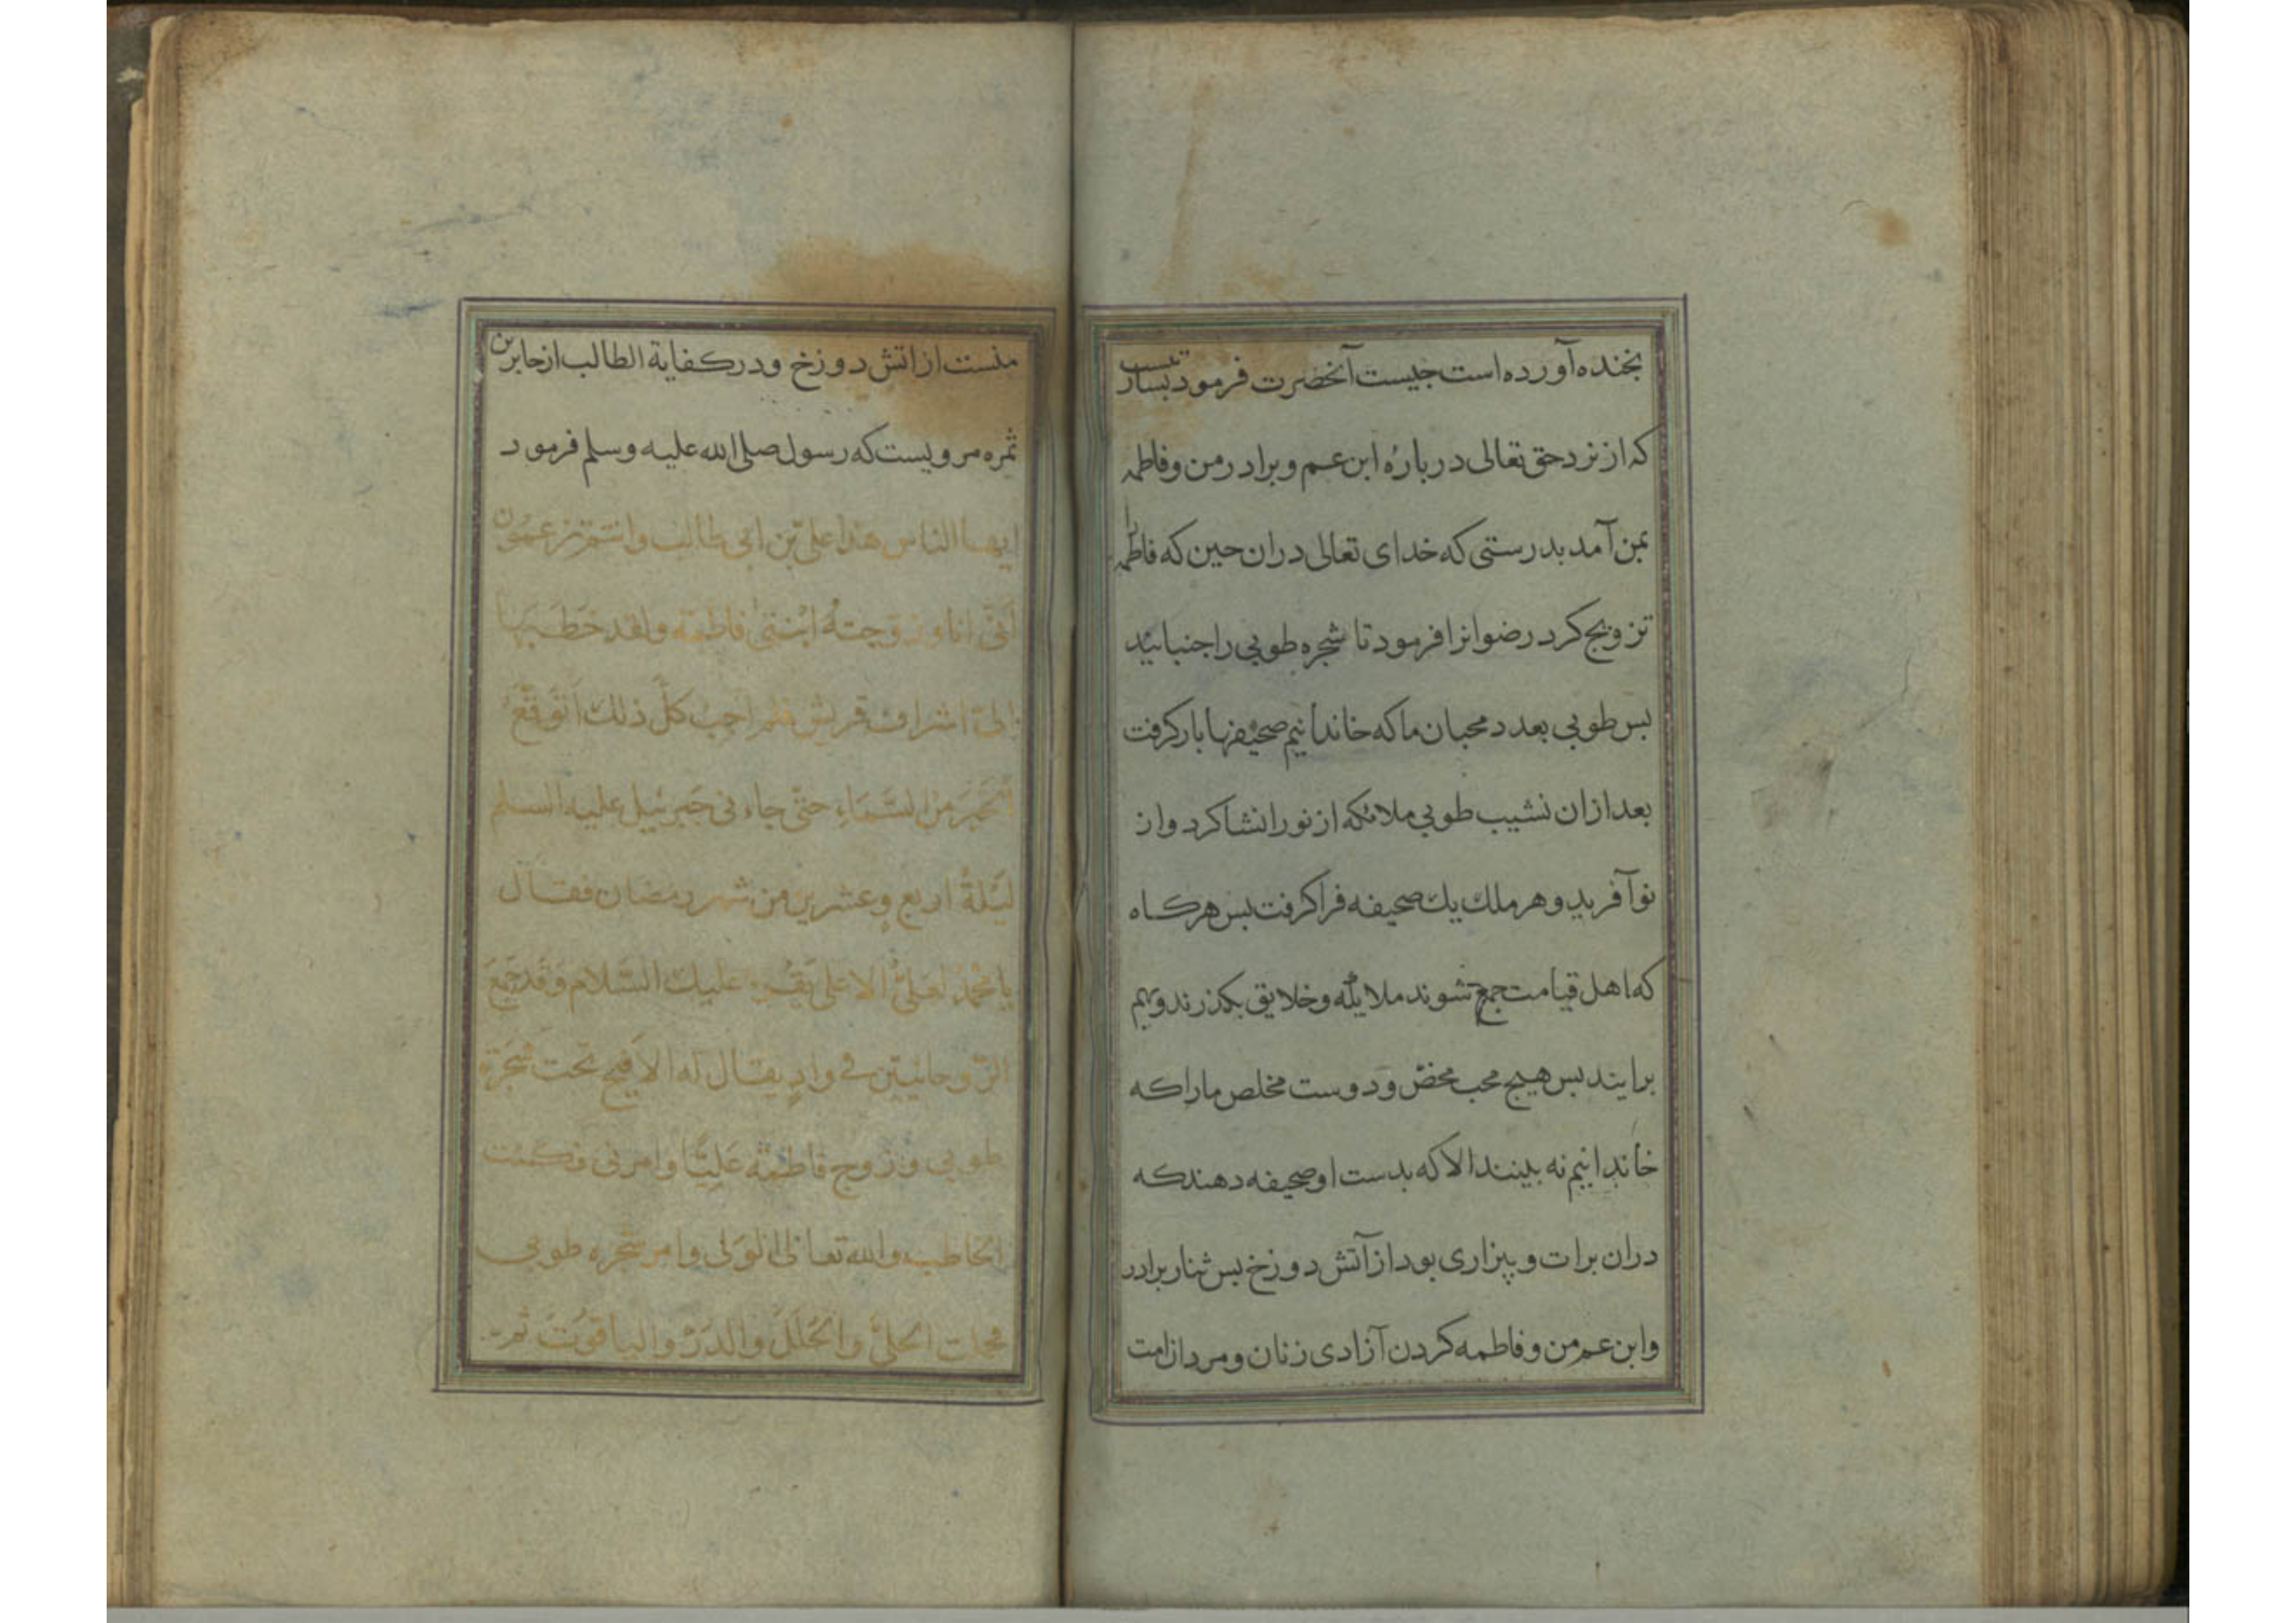 بخنده آورده است جیست آنحضرت فرمود بشارتیست
که از نزد حق تعالی درباره ابن عم و برادر من و فاطمه
بمن آمد بدرستی که خدای تعالی دران حین که فاطمه را
تزویج کرد رضوانرا فرمود تا شجره طوبی را جنبانید
بس طوبی بعدد محبان ما که خاندانیم صحیفها بار کرفت
بعد ازان نشیب طوبی ملائکه از نور انشا کرد و از
نو آفرید و هر ملک یک صحیفه فرا کرفت بس هرکاه
که اهل قیامت جمع شوند ملایکه و خلایق بکذرند و بهم
برایند بس هیج محب محض و دوست مخلص ما را که
خاندانیم نه بینند الا که بدست او صحیفه دهند که
دران برات و بیزاری بود از آتش دوزخ بس نثار برادر
و ابن عم من و فاطمه کردن آزادی زنان و مردان امت
منست از اتش دوزخ و در کفایة الطالب از جابر بن
ثمره مرویست که رسول صلی الله علیه وسلم فرمود
ایها الناس هذا علی بن ابی طالب وانتم تزعمون
أنّی انا زوجته ابنتی فاطمة ولقد خطبها
الیّ اشراف قریش فلم اجب کلّ ذلك أتوقّع
الخبر من السّماء حتّی جاءنی جبرئیل علیه السلم
لیلة اربع وعشرین من شهر رمضان فقال
یا محمّد العلیّ الاعلی یقرء علیك السّلام وقد جمع
الرّوحانیین فی وادٍ یقال له الافیح تحت شجرة
طوبی وزوج فاطمة علیّا وامرنی فکنت
الخاطب والله تعالی الولی وامر شجره طوبی
فحملت الحلیّ والحلل والدرّ والیاقوت ثم